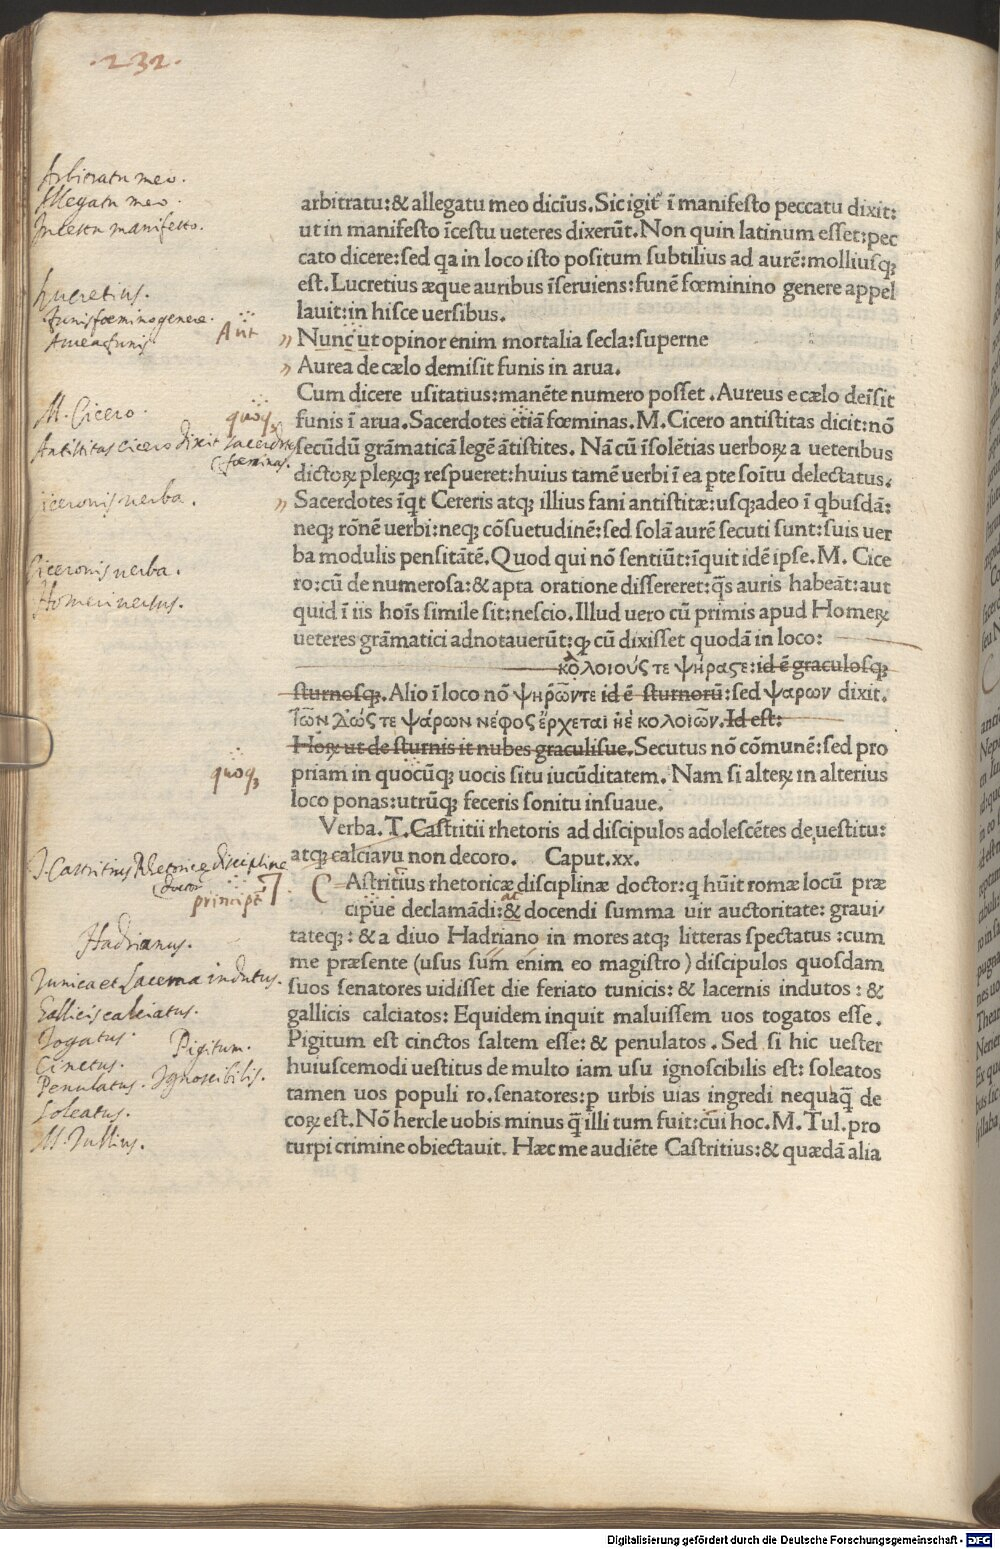 .232.
Arbitratu meo.
Allegatu meo.
Incestu manifesto.
arbitratu:& allegatu meo dicimus. Sic igit̃ ĩ manifesto peccatu dixit:
ut in manifesto ĩcestu ueteres dixerũt. Non quin latinum esset:pec
cato dicere:sed qa in loco isto positum subtilius ad aurẽ:molliusqꝫ
Lucretius.
est. Lucretius æque auribus ĩseruiens:funẽ fœminino genere appel
Funis fœmino genere.
lauit:in hisce uersibus.
Aurea funis.
Aut
Nunc ut opinor enim mortalia secla:superne
Aurea de cælo demisit funis in arua.
Cum dicere usitatius:manẽte numero posset . Aureus e cælo deĩsit
M. Cicero.
quoqꝫ
funis ĩ arua. Sacerdotes etiã fœminas. M. Cicero antistitas dicit:nõ
Antistitas Cicero dixit sacerdotes
fœminas.
secũdũ grãmaticã legẽ ãtistites. Nã cũ ĩsolẽtias uerboꝝ a ueteribus
dictoꝝ pleꝝqꝫ respueret:huius tamẽ uerbi ĩ ea pte soĩtu delectatus.
Ciceronis uerba.
Sacerdotes ĩqt Cereris atqꝫ illius fani antistitæ:usqꝫadeo ĩ qbusdã:
neqꝫ rõnẽ uerbi:neqꝫ cõsuetudinẽ:sed solã aurẽ secuti sunt:suis uer
Ciceronis uerba.
ba modulis pensitãtẽ. Quod qui nõ sentiũt:ĩquit idẽ ipse. M. Cice
Homeri uersus.
ro:cũ de numerosa:& apta oratione dissereret:q̃s auris habeãt:aut
quid ĩ iis hoĩs simile sit:nescio. Illud uero cũ primis apud Homeꝝ
ueteres grãmatici adnotauerũt:qꝫ cũ dixisset quodã in loco:
κολοιούς τε ψῆρας ϛε:id ẽ graculosqꝫ
sturnosqꝫ. Alio ĩ loco nõ ψηρῶντε id ẽ sturnorũ:sed ψαρων dixit.
Τῶν Δώς τε ψάρων νέφος ἔρχεται ἠὲ κολοιῶν. Id est:
Hoꝝ ut de sturnis it nubes graculisue. Secutus nõ cõmunẽ:sed pro
quoqꝫ
priam in quocũqꝫ uocis situ iucũditatem. Nam si alteꝝ in alterius
loco ponas:utrũqꝫ feceris sonitu insuaue.
Verba. T. Castritii rhetoris ad discipulos adolescẽtes de uestitu:
atqꝫ calciatu non decoro. Caput.xx.
T. Castritius Rhetoricæ discipline
doctor
principẽ
CAstritius rhetoricæ disciplinæ doctor:q hũit romæ locũ præ
cipue declamãdi:& docendi summa uir auctoritate: graui/
Hadrianus.
tateqꝫ: & a diuo Hadriano in mores atqꝫ litteras spectatus :cum
me præsente (usus sum enim eo magistro) discipulos quosdam
Tunica et Lacerna indutus.
suos senatores uidisset die feriato tunicis: & lacernis indutos : &
Gallicis calciatus.
gallicis calciatos: Equidem inquit maluissem uos togatos esse.
Togatus
Pigitum.
Pigitum est cinctos saltem esse: & penulatos. Sed si hic uester
Cinctus.
Penulatus. Ignoscibilis.
huiuscemodi uestitus de multo iam usu ignoscibilis est: soleatos
Soleatus.
tamen uos populi ro.senatores:p urbis uias ingredi nequaq̃ de
coꝝ est. Nõ hercle uobis minus q̃ illi tum fuit:cui hoc. M. Tul. pro
M. Tullius.
turpi crimine obiectauit. Hæc me audiẽte Castritius:& quædã alia
Digitalisierung gefördert durch die Deutsche Forschungsgemeinschaft - DFG